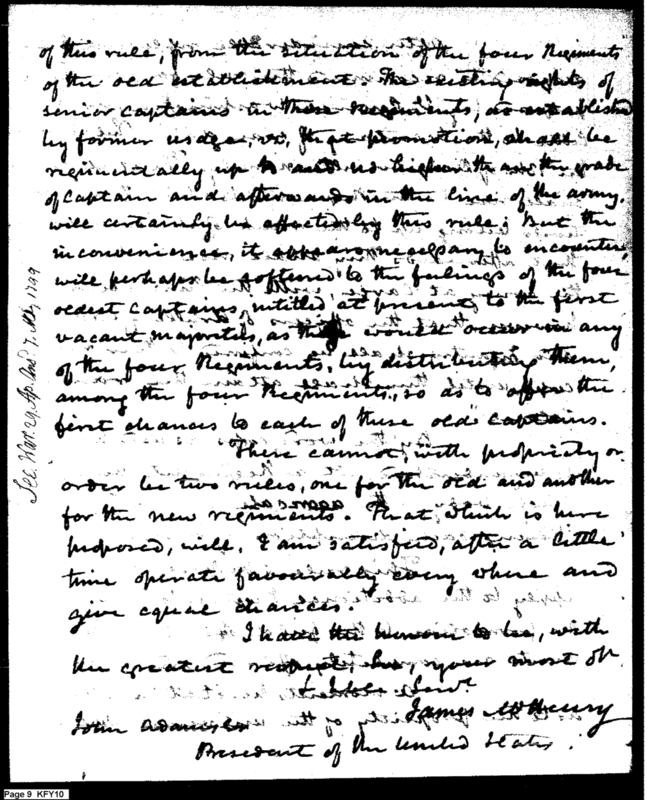 of this rule, from the situation of the four Regiments
of the old establishment. The existing rights of
senior captains in these regiments, as established
by former usage, viz, that promotion, shall be
regimentally up to and no higher than the grade
of Captain and afterwards in the line of the army,
will certainly be affected by this rule; But the
inconvenience, it appears necessary to encounter,
will perhaps be softened to the feelings of the four
oldest Captains, intitled at present to the first
vacant majorities, as they would occur in any
of the four Regiments, by distributing them,
among the four Regiments, so as to offer the
first chances to each of these old captains.
There cannot, with propriety or
order be two rules, one for the old and another
for the new regiments. That, which is here
proposed, will, I am satisfied, after a little
time operate favourably every where and
give equal chances.
I have the honour to be, with
the greatest respect, Sir, your most ob
& Hble Servt.
James McHenry
John Adams
President of the United States.
Sec. War. 29. Ap. Ansd 7. May 1799
Page 9 KFY10